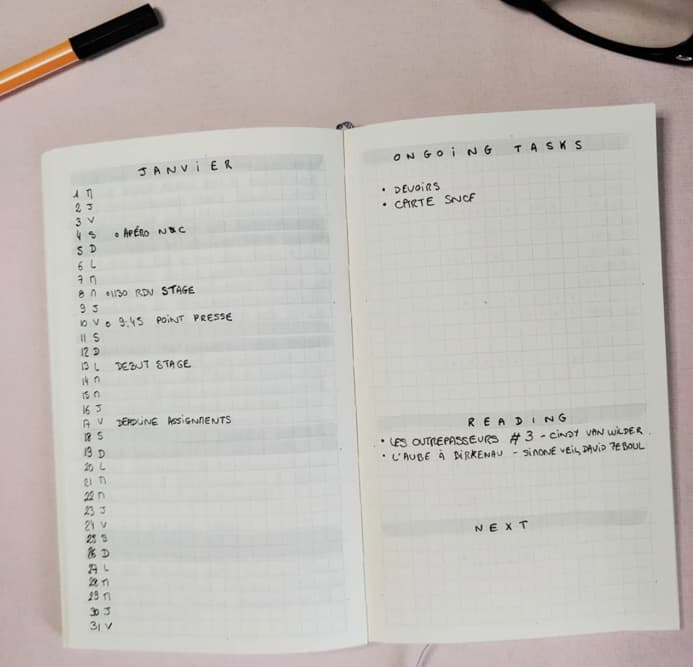 JANVIER
1 M
2 J
3 V
4 S o APÉRO N&C
5 D
6 L
7 M
8 M o 1130 RDV STAGE
9 J
10 V o 9:45 POINT PRESSE
11 S
12 D
13 L DEBUT STAGE
14 M
15 M
16 J
17 V DEADLINE ASSIGNMENTS
18 S
19 D
20 L
21 M
22 M
23 J
24 V
25 S
26 D
27 L
28 M
29 M
30 J
31 V
ONGOING TASKS
• DEVOIRS
• CARTE SNCF
READING
• LES OUTREPASSEURS #3 - CINDY VAN WILDER
• L'AUBE À BIRKENAU - SIMONE VEIL, DAVID TEBOUL
NEXT